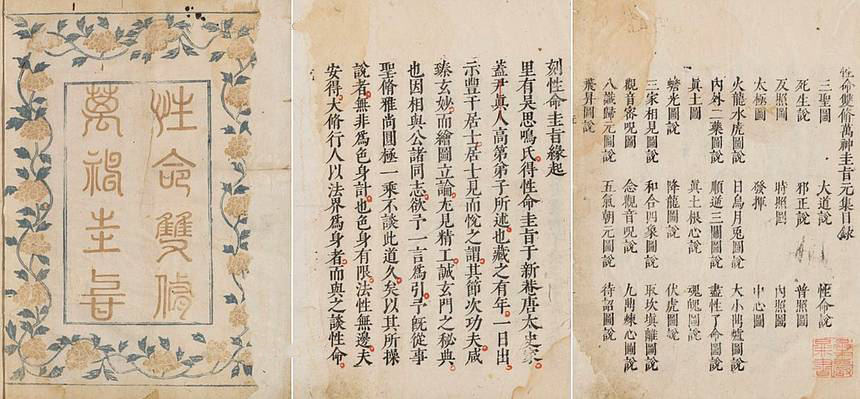 性命雙脩
萬神圭旨
刻性命圭旨緣起
里有吳思鳴氏得性命圭旨于新菴唐太史家
蓋尹眞人高第弟子所述也藏之有年一日出
示豐干居士居士見而悅之謂其節次功夫咸
臻玄妙而繪圖立論尤見精工誠玄門之秘典
也因相與公諸同志欲予一言爲引予旣從事
聖脩雅尚圓極一乘不談此道久矣以其所操
說者無非爲色身計也色身有限法性無邊夫
安得大脩行人以法界爲身者而與之談性命
性命雙脩萬神圭旨元集目錄
三聖圖 大道說 性命說
死生說 邪正說 普照圖
反照圖 時照圖 內照圖
太極圖 發揮 中心圖
火龍水虎圖說 日烏月兎圖說 大小鼎爐圖說
內外二藥圖說 順逆三關圖說 盡性了命圖說
眞土圖 眞土根心說 魂魄圖說
蟾光圖說 降龍圖說 伏虎圖說
三家相見圖說 和合四象圖說 取坎塡離圖說
觀音密呪圖 念觀音呪說 九鼎煉心圖說
八識歸元圖說 五氣朝元圖說 待詔圖說
飛昇圖說